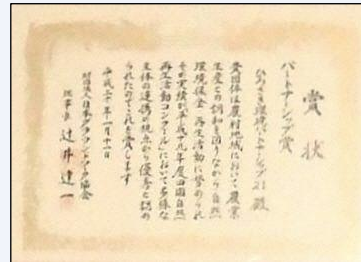 賞状
パートナーシップ賞
ひろさき環境パートナーシップ21殿
貴団体は農村地域において農業
生産との調和を図りながら自然
環境保全・再生活動に努められ
その実績が平成十九年度田園自然
再生活動コンクールにおいて多様な
主体の連携の視点から優秀と認め
られたのでこれを賞します
平成二十年一月十一日
財団法人日本グラウンドワーク協会
理事長 辻井達一